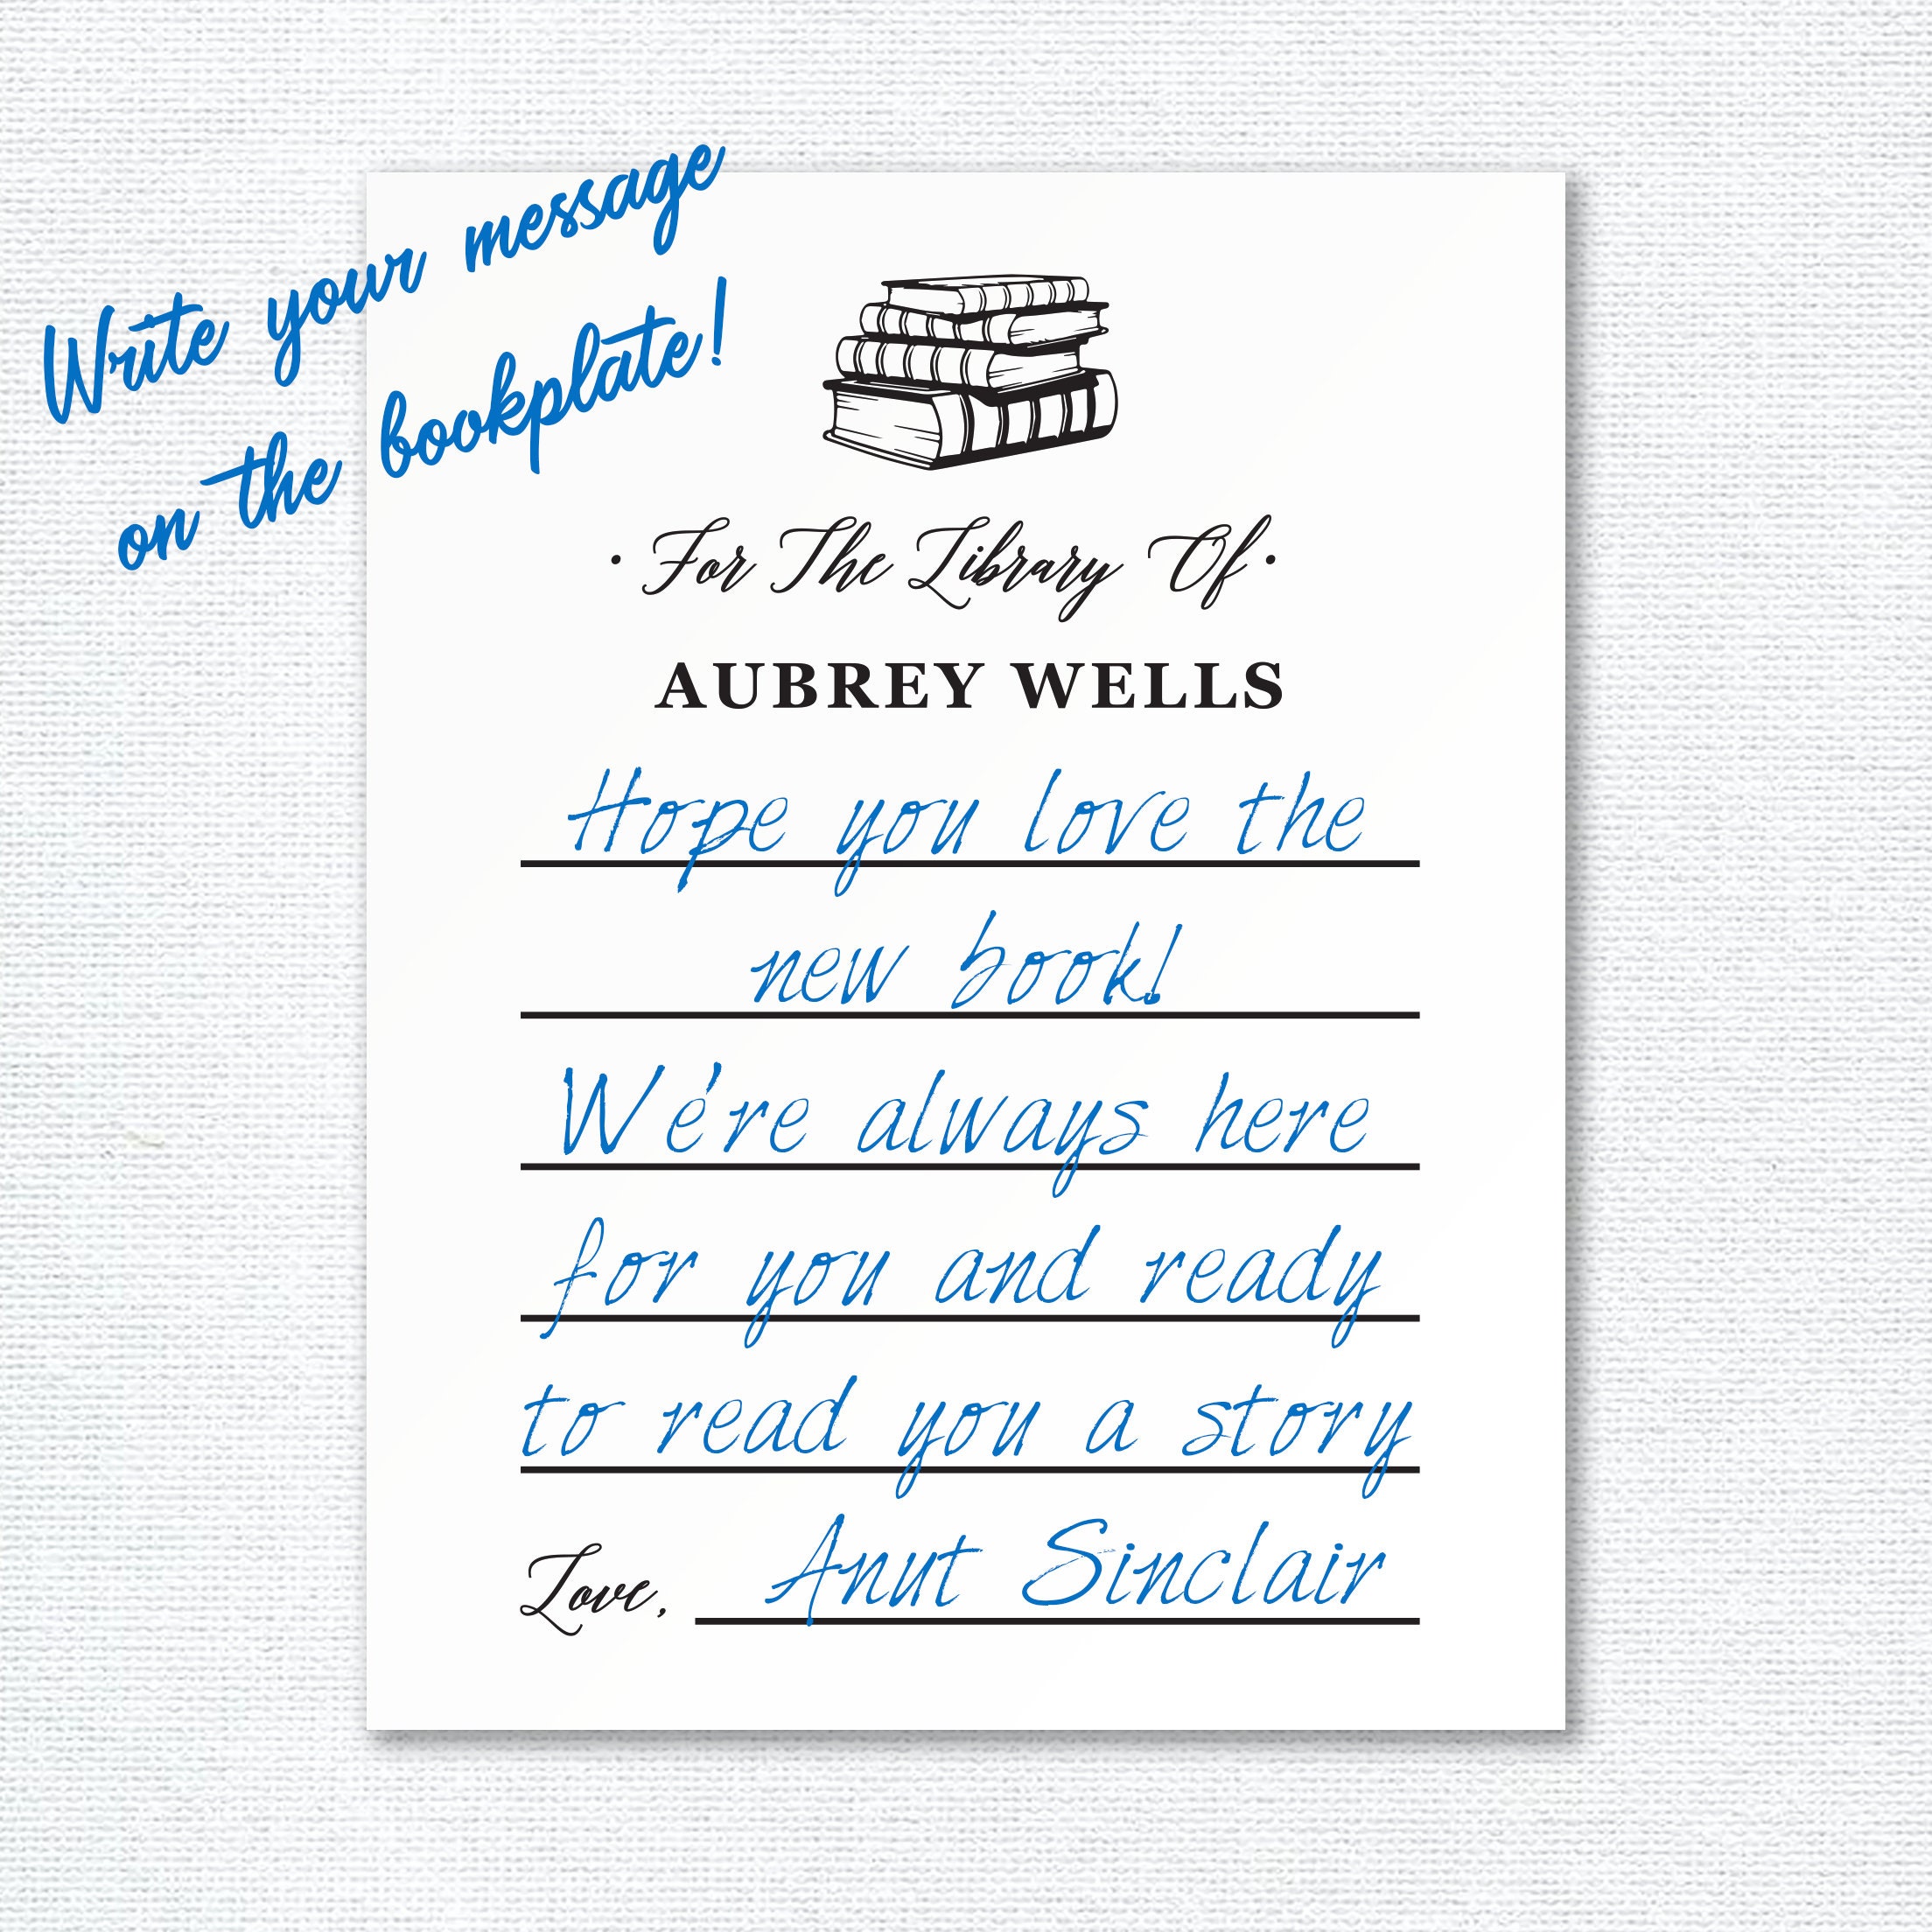 Write your message
on the bookplate!
• For The Library Of •
AUBREY WELLS
Hope you love the
new book!
We're always here
for you and ready
to read you a story
Love, Anut Sinclair